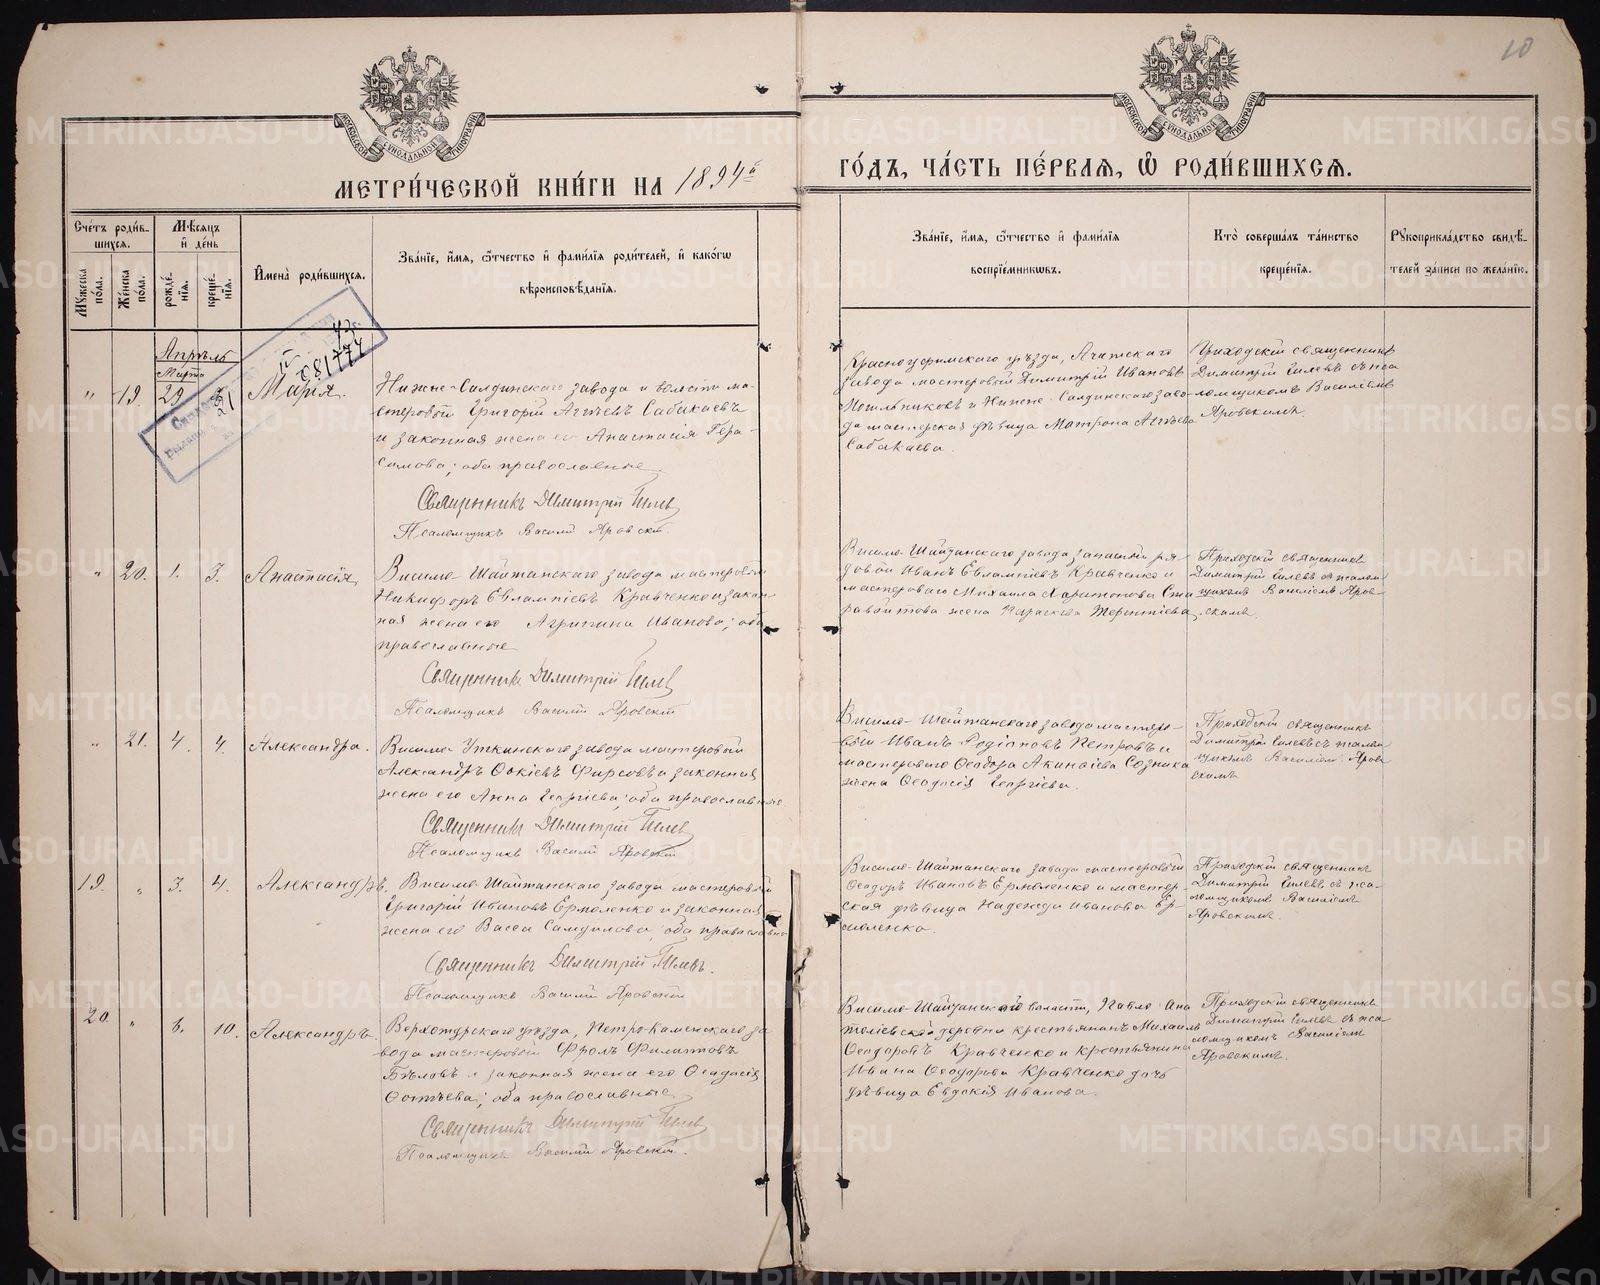 10
МОСКОВСКОЙ СѴНОДАЛЬНОЙ ТИПОГРАФІИ
МОСКОВСКОЙ СѴНОДАЛЬНОЙ ТИПОГРАФІИ
МЕТРИ́ЧЕСКОЙ КНИ́ГИ НА 1894й
ГО́ДЪ, ЧА́СТЬ ПЕ́РВАЯ, Ѡ҆ РОДИ́ВШИХСЯ.
Сче́тъ роди́в-
шихся.
Мѣ́сяцъ
и҆ де́нь
Му́жеска по́ла.
Же́нска по́ла.
рожде́-
нїя.
креще́-
нїя.
И҆мена̀ роди́вшихся.
Зва́нїе, и҆́мя, ѻ҆́тчество и҆ фами́лїя роди́телей, и҆ како́гѡ
вѣроисповѣ́данїя.
Зва́нїе, и҆́мя, ѻ҆́тчество и҆ фами́лїя
воспрїе́мникѡвъ.
Кто̀ соверша́лъ та́инство
креще́нїя.
Рукоприкла́дство свидѣ́-
телей за́писи по жела́нїю.
Апрѣль
Марта
" 19. 29 3 Марія.
21
081774
Нижне-Салдинскаго завода и волости ма-
стеровой Григорій Агѣевъ Сабакаевъ
и законная жена его Анастасія Гера-
симова; оба православные.
Священникъ Димитрій Гилевъ
Псаломщикъ Василій Яровскій.
Красноуфимскаго уѣзда, Ачитскаго
завода мастеровой Димитрій Ивановъ
Могильниковъ и Нижне-Салдинскаго заво-
да мастерская дѣвица Матрона Агѣева
Сабакаева.
Приходскій священникъ
Димитрій Гилевъ съ пса-
ломщикомъ Василіемъ
Яровскимъ.
" 20. 1. 3. Анастасія,
Висимо-Шайтанскаго завода мастеровой
Никифоръ Евлампіевъ Кравченко и закон-
ная жена его Агрипина Иванова; оба
православные
Священникъ Димитрій Гилевъ
Псаломщикъ Василій Яровскій
Висимо-Шайтанскаго завода запасный ря-
довой Иванъ Евлампіевъ Кравченко и
мастероваго Михаила Харитонова
жена Параскева Терентіева,
Приходскій священникъ
Димитрій Гилевъ съ псалом-
щикомъ Василіемъ Яров-
скимъ
" 21. 4. 4. Александра.
Висимо-Уткинскаго завода мастеровой
Александръ Фирсовъ и законная
жена его Анна Георгіева; оба православные.
Священникъ Димитрій Гилевъ
Псаломщикъ Василій Яровскій
Висимо-Шайтанскаго завода мастеро-
вой Иванъ Родіоновъ Петровъ и
мастероваго Ѳеодора Акинѳіева Созника
жена Ѳеодосія Георгіева.
Приходскій священникъ
Димитрій Гилевъ съ псалом-
щикомъ Василіемъ Яров-
скимъ
19. " 3. 4. Александръ.
Висимо-Шайтанскаго завода мастеровой
Григорій Ивановъ Ермоленко и законная
жена его Васса Самуилова; оба православные
Священникъ Димитрій Гилевъ.
Псаломщикъ Василій Яровскій
Висимо-Шайтанскаго завода мастеровой
Ѳеодоръ Ивановъ Ермоленко и мастер-
ская дѣвица Надежда Иванова Ер-
моленко.
Приходскій священникъ
Димитрій Гилевъ съ пса-
ломщикомъ Василіемъ
Яровскимъ.
20. " 6. 10. Александръ.
Верхотурскаго уѣзда, Петро-Каменскаго за
вода мастеровой Фролъ Филиповъ
Бѣловъ и законная жена его Ѳеодосія
Фотѣева; оба православные
Священникъ Димитрій Гилевъ
Псаломщикъ Василій Яровскій.
Висимо-Шайтанской волости, Павло-Ана
толіевской деревни крестьянинъ Михаилъ
Ѳеодоровъ Кравченко и крестьянина
Ивана Ѳеодорова Кравченко дочь
дѣвица Евдокія Иванова.
Приходскій священникъ
Димитрій Гилевъ съ пса
ломщикомъ Василіемъ
Яровскимъ.
METRIKI.GASO-URAL.RU